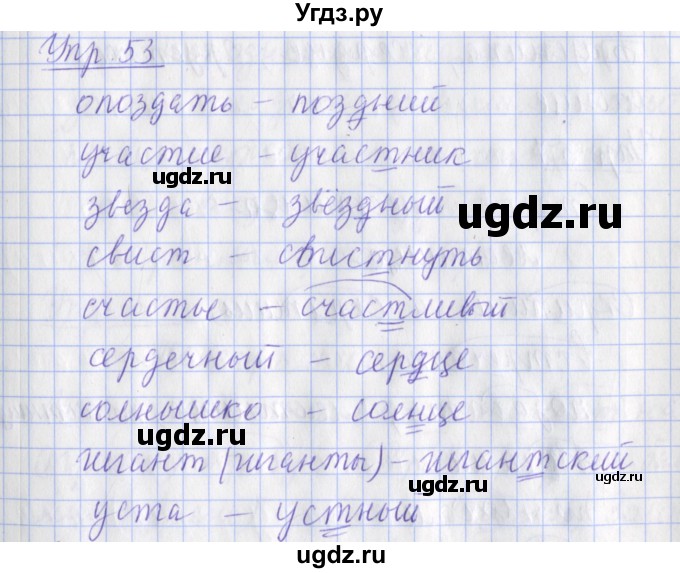 Угдз.ру
Упр. 53
опоздать – поздний
участие – участник
звезда – звёздный
свист – свистнуть
счастье – счастливый
сердечный – сердце
солнышко – солнце
гигант (гиганты) – гигантский
уста – устный
ugdz.ru
ugdz.ru
ugdz.ru
ugdz.ru
ugdz.ru
ugdz.ru